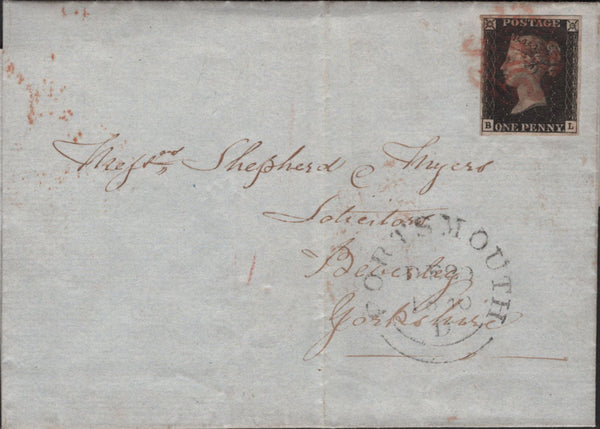 POSTAGE
B ONE PENNY L
Messrs Shepherd & Myers
Solicitors
Beverley
Yorkshire
PORTSMOUTH